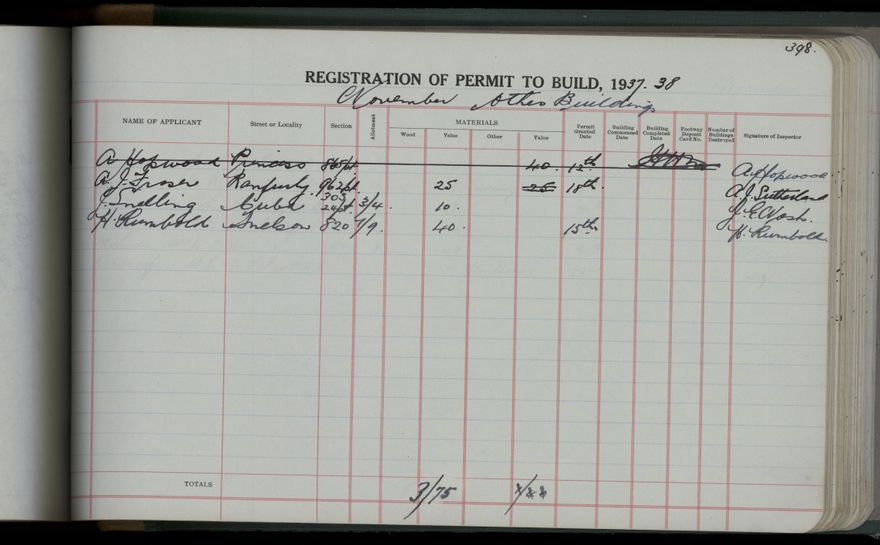 398.
REGISTRATION OF PERMIT TO BUILD, 1937. 38
November Other Buildings
NAME OF APPLICANT Street or Locality Section Allotment MATERIALS Wood Value Other Value Permit Granted Date Building Commenced Date Building Completed Date Footway Deposit Card No. Number of Buildings Destroyed Signature of Inspector
A Hopwood Princess 40. 12th A Hopwood.
A. J. Fraser Ranfurly 25 25 18th. A. J. Sutherland
J. Snelling Cuba 303 3/4. 10.
H. Rumbold Snelson 820 7/9. 40. 15th. H. Rumbold
TOTALS 3/75